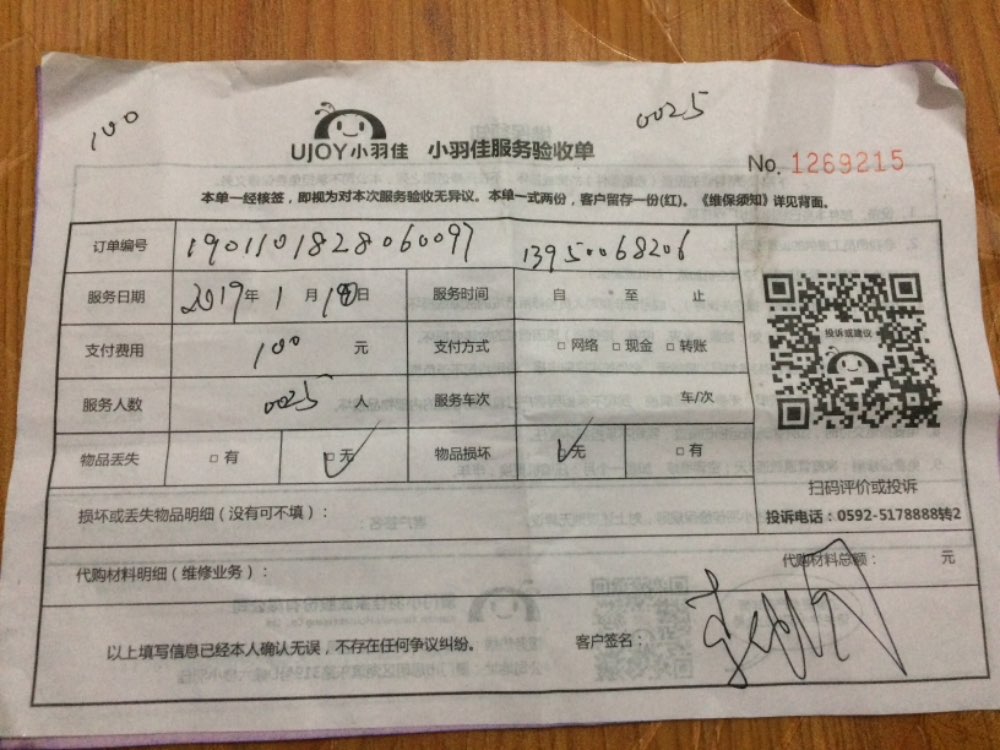 100
0025
UJOY小羽佳 小羽佳服务验收单
No. 1269215
本单一经核签，即视为对本次服务验收无异议。本单一式两份，客户留存一份(红)。《维保须知》详见背面。
订单编号 1901101828060097 13950068206
服务日期 2019年 1 月 10日 服务时间 自 至 止
投诉或建议
支付费用 100 元 支付方式 □ 网络 □ 现金 □ 转账
服务人数 0025 人 服务车次 车/次
物品丢失 □ 有 □ 无 物品损坏 □ 无 □ 有
扫码评价或投诉
损坏或丢失物品明细（没有可不填）：
投诉电话：0592-5178888转2
代购材料明细（维修业务）： 代购材料总额： 元
以上填写信息已经本人确认无误，不存在任何争议纠纷。 客户签名：